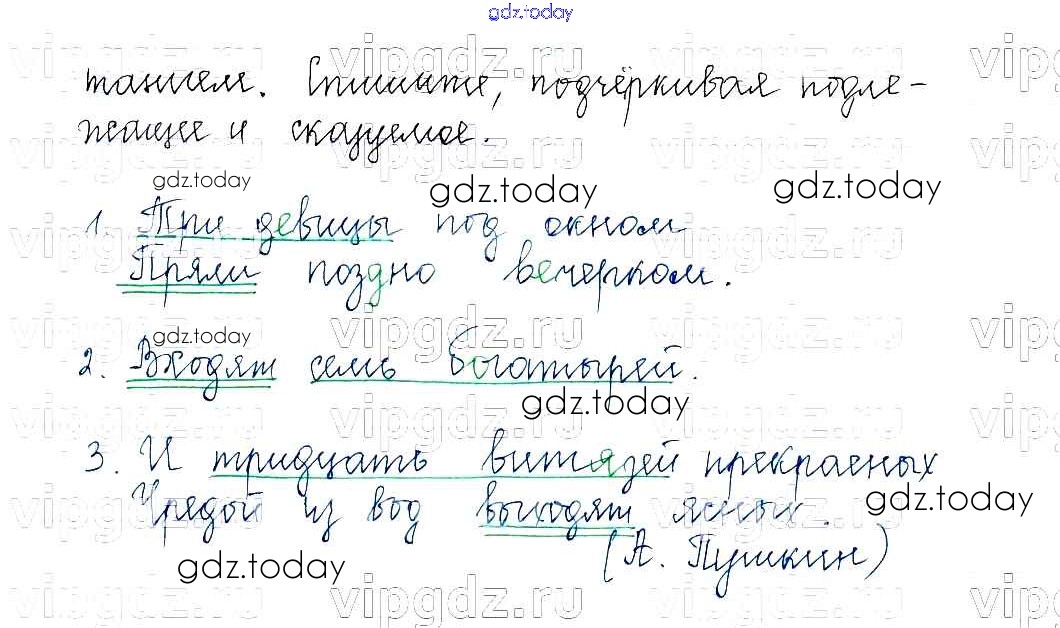 gdz.today
танием. Спишите, подчёркивая подле-
жащее и сказуемое.
gdz.today gdz.today gdz.today
1. Три девицы под окном
Пряли поздно вечерком.
vipgdz.ru vipgdz.ru vipgdz.ru
gdz.today
2. Входят семь богатырей.
gdz.today
3. И тридцать витязей прекрасных
Чредой из вод выходят ясных.
gdz.today
(А. Пушкин)
gdz.today
vipgdz.ru vipgdz.ru